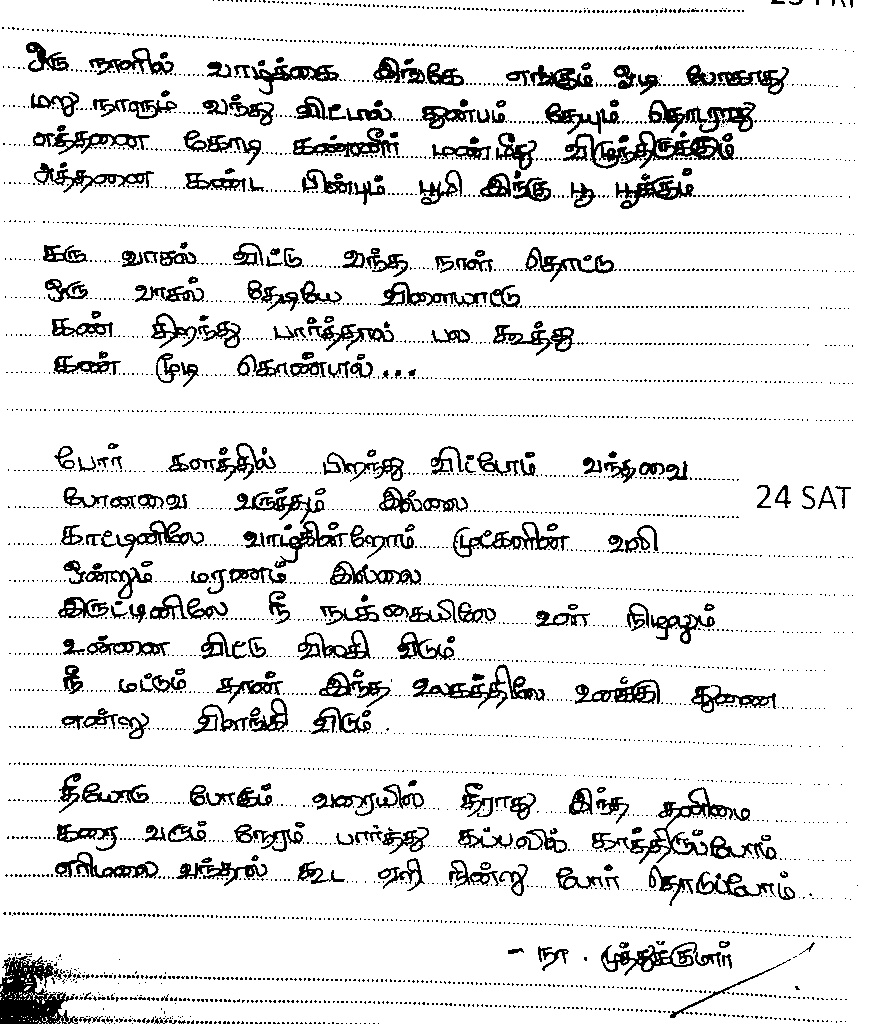 ஒரு நாளில் வாழ்க்கை இங்கே எங்கும் ஓடி போகாது
மறு நாளும் வந்து விட்டால் துன்பம் தேயும் தொடராது
எத்தனை கோடி கண்ணீர் மண்மீது விழுந்திருக்கும்
அத்தனை கண்ட பின்பும் பூமி இங்கு பூ பூக்கும்
கரு வாசல் விட்டு வந்த நாள் தொட்டு
ஒரு வாசல் தேடியே விளையாட்டு
கண் திறந்து பார்த்தால் பல கூத்து
கண் மூடி கொண்டால்...
போர் களத்தில் பிறந்து விட்டோம் வந்தவை
போனவை வருத்தம் இல்லை
24 SAT
காட்டினிலே வாழ்கின்றோம் முட்களின் வலி
ஒன்றும் மரணம் இல்லை
இருட்டினிலே நீ நடக்கையிலே உன் நிழலும்
உன்னை விட்டு விலகி விடும்
நீ மட்டும் தான் இந்த உலகத்திலே உனக்கு துணை
என்று விளங்கி விடும்.
தீயோடு போகும் வரையில் தீராது இந்த தனிமை
கரை வரும் நேரம் பார்த்து கப்பலில் காத்திருப்போம்
எரிமலை வந்தால் கூட ஏறி நின்று போர் தொடுப்போம்.
- நா. முத்துக்குமார்